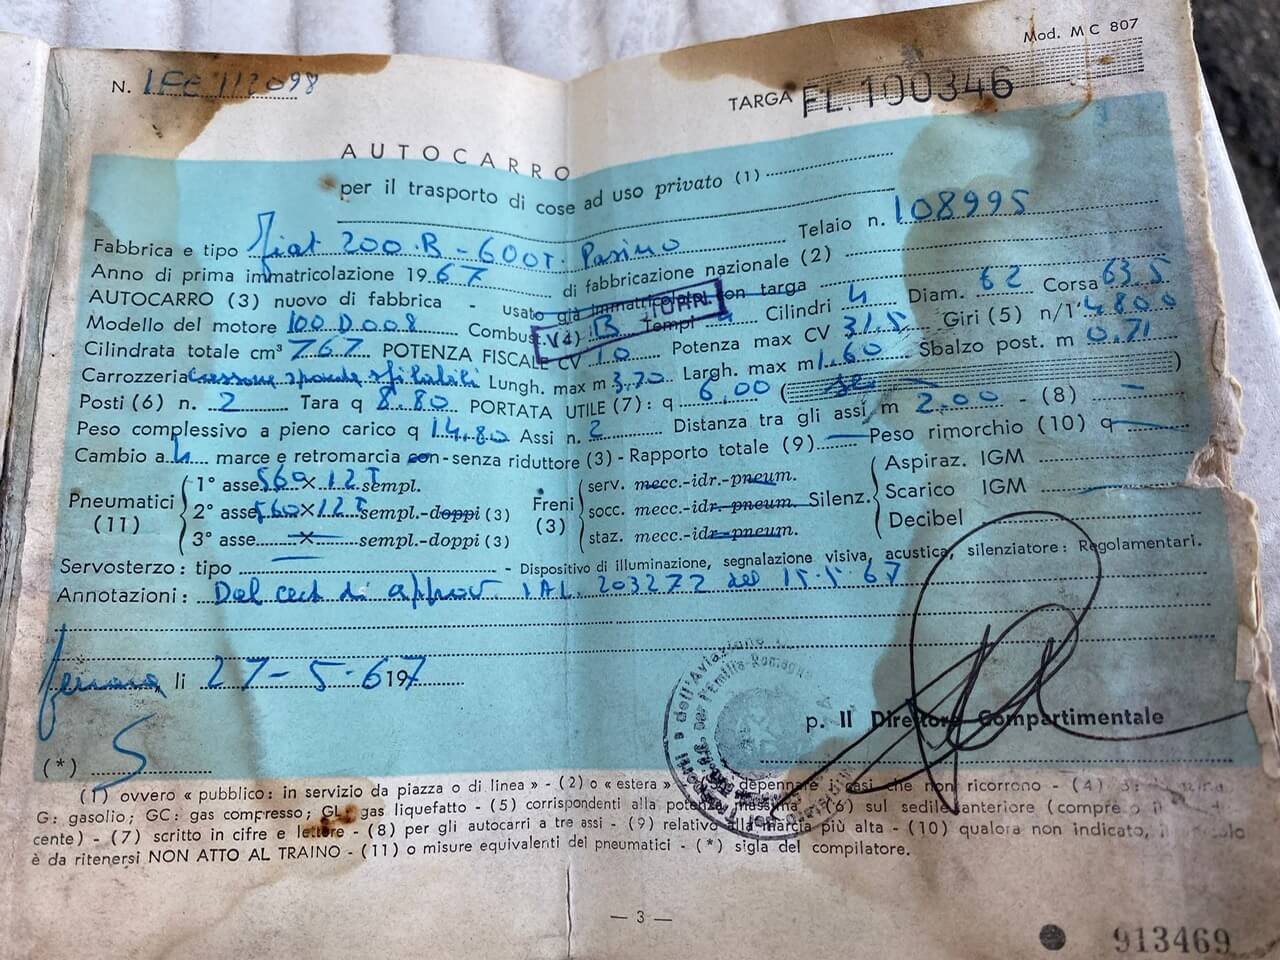 Mod. MC 807
N. IEE 112098
TARGA FL. 100346
AUTOCARRO
per il trasporto di cose ad uso privato (1)
Fabbrica e tipo Fiat 200.B - 600T. Pasino Telaio n. 108995
Anno di prima immatricolazione 19 67 di fabbricazione nazionale (2)
AUTOCARRO (3) nuovo di fabbrica - usato già immatricolato con targa
Modello del motore 100D008 Combus. (4) B Tempi 4 Cilindri 4 Diam. 62 Corsa 63.5
Cilindrata totale cm³ 767 POTENZA FISCALE CV 10 Potenza max CV 31.5 Giri (5) n/1' 4800
Carrozzeria Cassone sponde sfilabili Lungh. max m 3.70 Largh. max m 1.60 Sbalzo post. m 0.71
Posti (6) n. 2 Tara q 8.80 PORTATA UTILE (7): q 6,00 (sei)
Peso complessivo a pieno carico q 14.80 Assi n. 2 Distanza tra gli assi m 2.00 - (8) -
Cambio a 4 marce e retromarcia con-senza riduttore (3) - Rapporto totale (9) - Peso rimorchio (10) q -
Pneumatici (11) 1° asse 560 X 12 I sempl.
2° asse 560 X 12 I sempl.-doppi (3)
3° asse X sempl.-doppi (3)
Freni (3) serv. mecc.-idr.-pneum.
socc. mecc.-idr.-pneum.
staz. mecc.-idr.-pneum.
Silenz. Aspiraz. IGM
Scarico IGM
Decibel
Servosterzo: tipo - Dispositivo di illuminazione, segnalazione visiva, acustica, silenziatore: Regolamentari.
Annotazioni: Dal cert di approv. IAL. 203272 del 15.5.67
Ferrara, li 27-5-67 197
p. Il Direttore Compartimentale
(*) S
(1) ovvero « pubblico: in servizio da piazza o di linea » - (2) o « estera » - depennare i casi che non ricorrono - (4)
G: gasolio; GC: gas compresso; GL: gas liquefatto - (5) corrispondenti alla potenza massima - (6) sul sedile anteriore (compreso il
cente) - (7) scritto in cifre e lettere - (8) per gli autocarri a tre assi - (9) relativo alla marcia più alta - (10) qualora non indicato, il
è da ritenersi NON ATTO AL TRAINO - (11) o misure equivalenti dei pneumatici - (*) sigla del compilatore.
— 3 —
913469